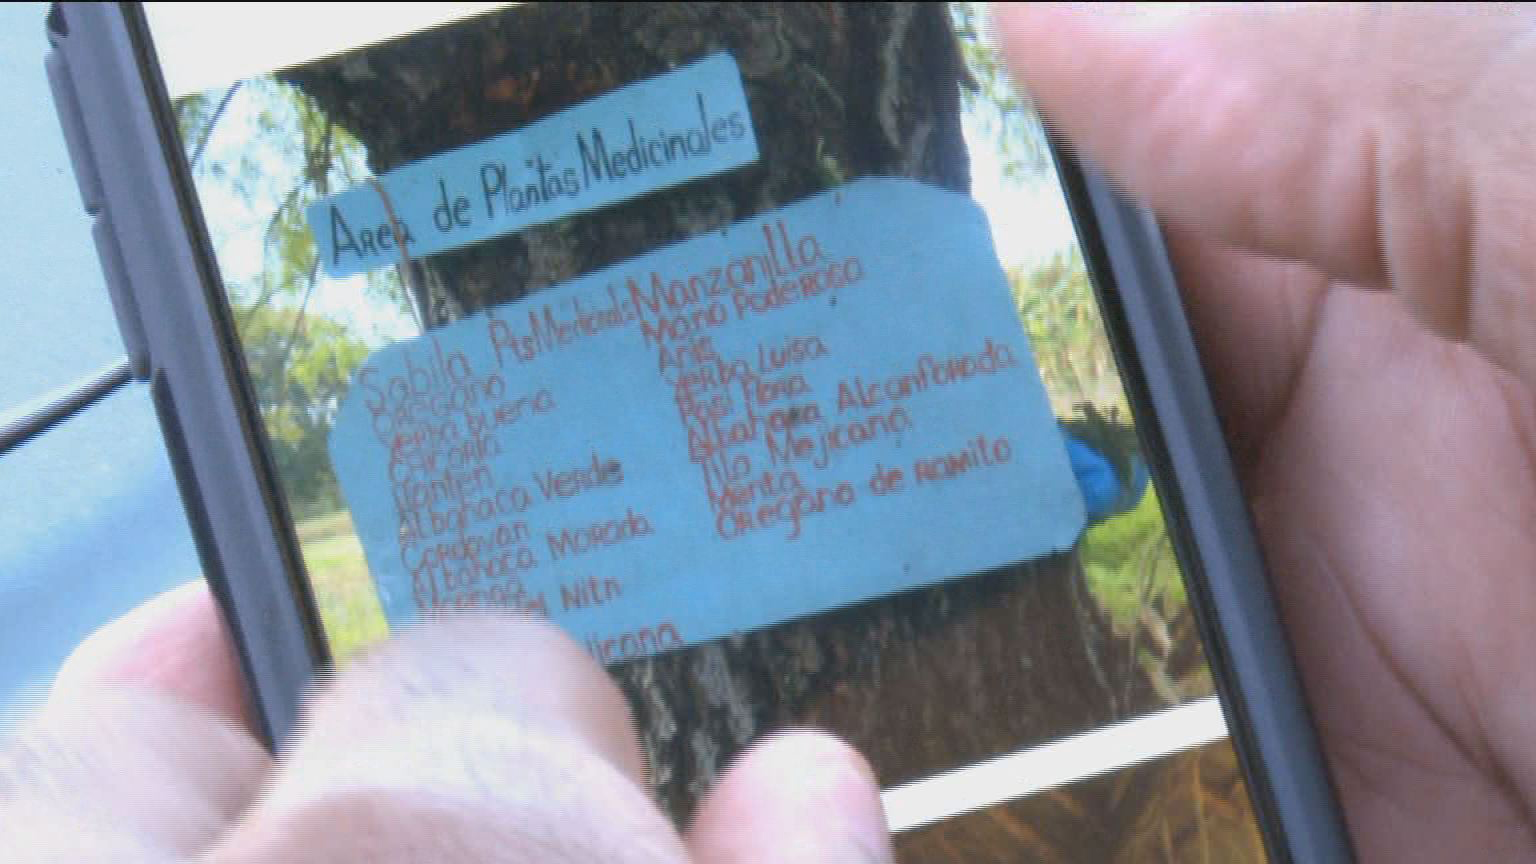 Area de Plantas Medicinales
Pts Medicinals
Sabila
Oregano
Yerba buena
Chicoria
Llanten
Albahaca Verde
Cordovan
Albahaca Morada
del Nitn
Manzanilla
Mano Poderosa
Anis
Yerba Luisa
Pasi Flora
Albahaca Alcanforada
Tilo Mejicano
Menta
Oregano de Ramito